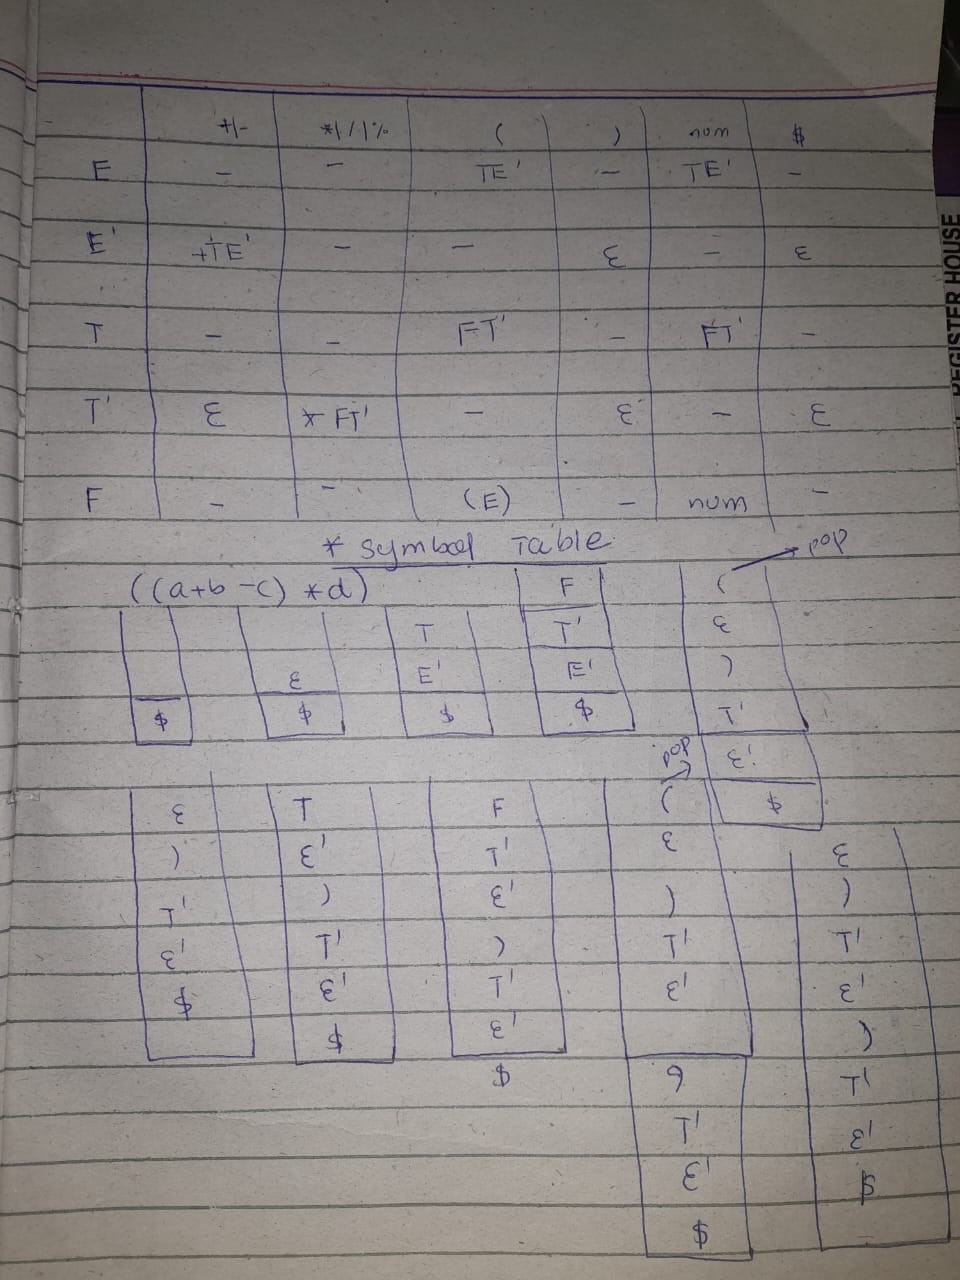 +/- *|/|% ( ) num $
E - - TE' - TE' -
E' +TE' - - ε - ε
T - - FT' - FT' -
T' ε *FT' - ε - ε
F - - (E) - num -
* Symbol Table
((a+b-c) *d)
$
ε
$
T
E'
$
F
T'
E'
$
( pop
ε
)
T'
ε'
$
ε
)
T'
ε'
$
T
ε'
)
T'
ε'
$
F
T'
ε'
)
T'
ε'
$
pop
(
ε
)
T'
ε'
T'
ε'
$
ε
)
T'
ε'
)
T'
ε'
$
REGISTER HOUSE